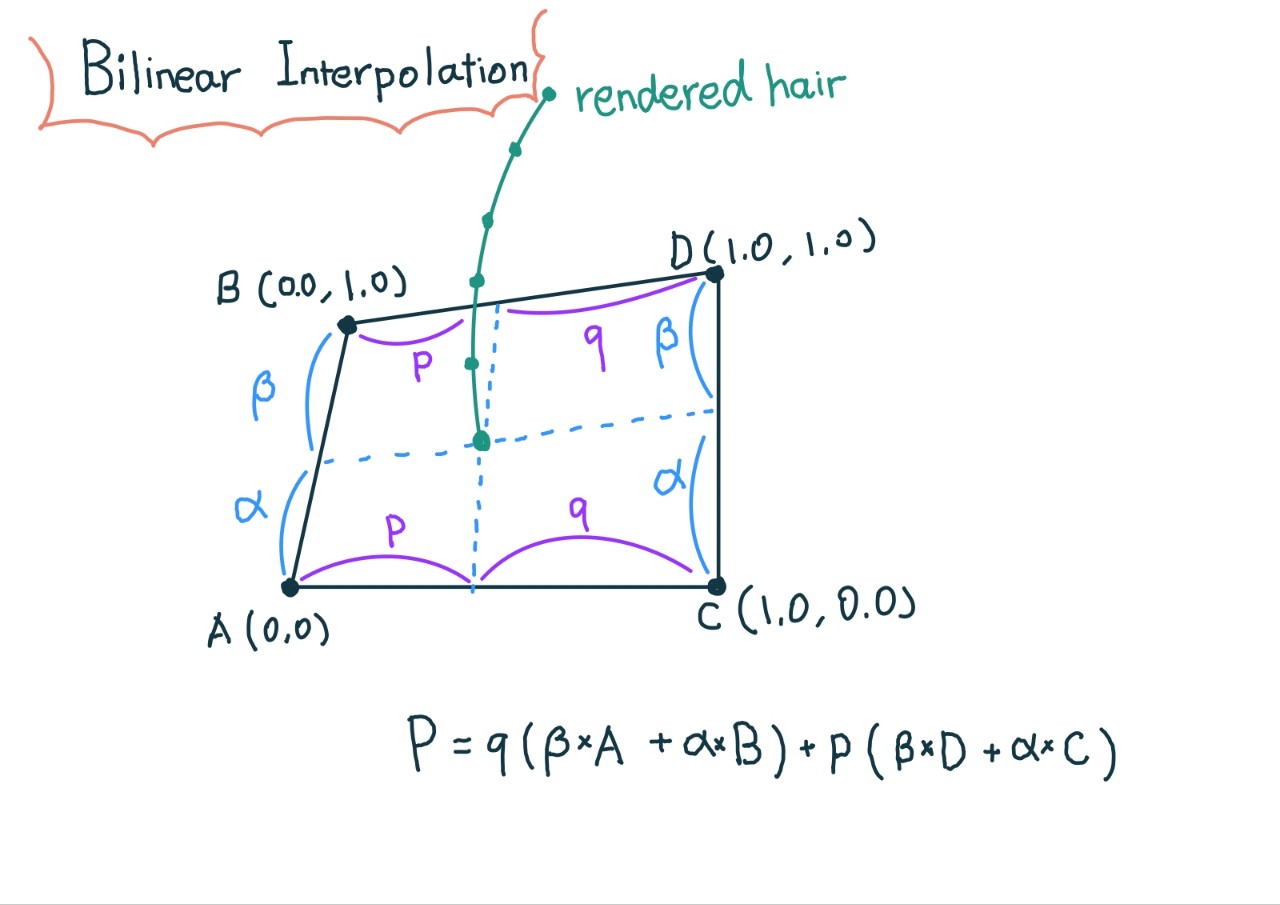 Bilinear Interpolation
rendered hair
D(1.0, 1.0)
B (0.0, 1.0)
β
q
p
β
α
q
α
p
C (1.0, 0.0)
A (0,0)
P = q(β×A + α×B) + p(β×D + α×C)